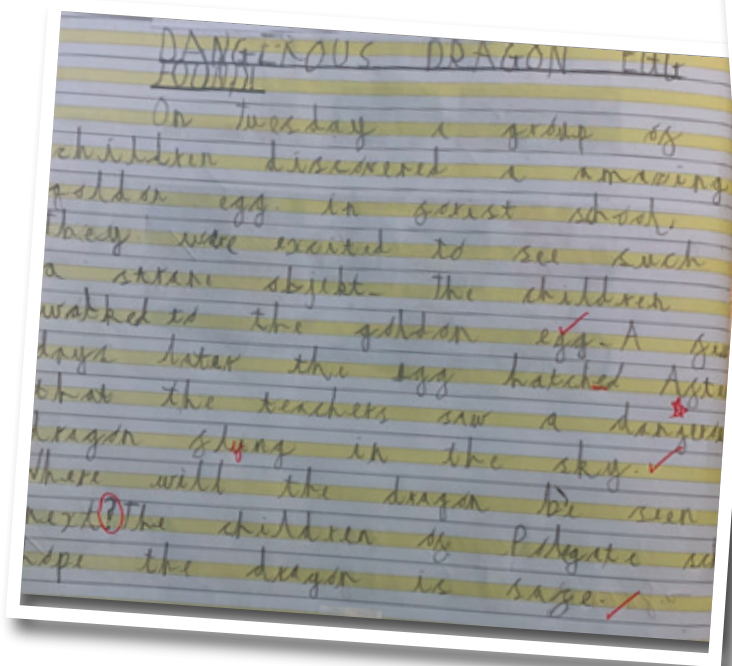 DANGEROUS DRAGON EGG
FOUND!
On Tuesday a group of
children discovered a amazing
goldon egg. in forist school.
they were excited to see such
a strane objekt. The children
walked to the goldon egg. A few
days later the egg hatched After
that the teachers saw a dangerous
dragon flyng in the sky.
Where will the dragon be seen
next? The children of
hope the dragon is safe.